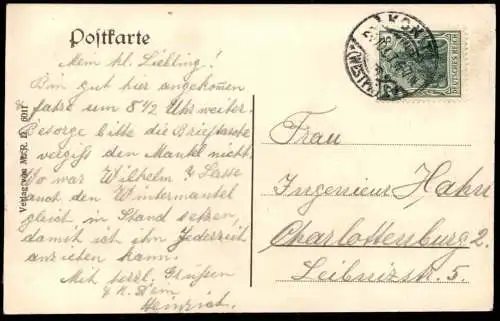 Postkarte
Mein kl. Liebling!
Bin gut hier angekommen
fahre um 8 1/2 Uhr weiter.
Besorge bitte die Brieftasche
vergiß den Mantel nicht,
So war Wilhelm &
auch den Wintermantel
gleich in Stand setzen,
damit ich ihn Jederzeit
anziehen kann.
Mit herzl. Grüßen
Heinrich.
Verlag von M. R. D. 6011
DEUTSCHES REICH
Frau
Ingenieur Hahn
Charlottenburg 2.
Leibnizstr. 5.